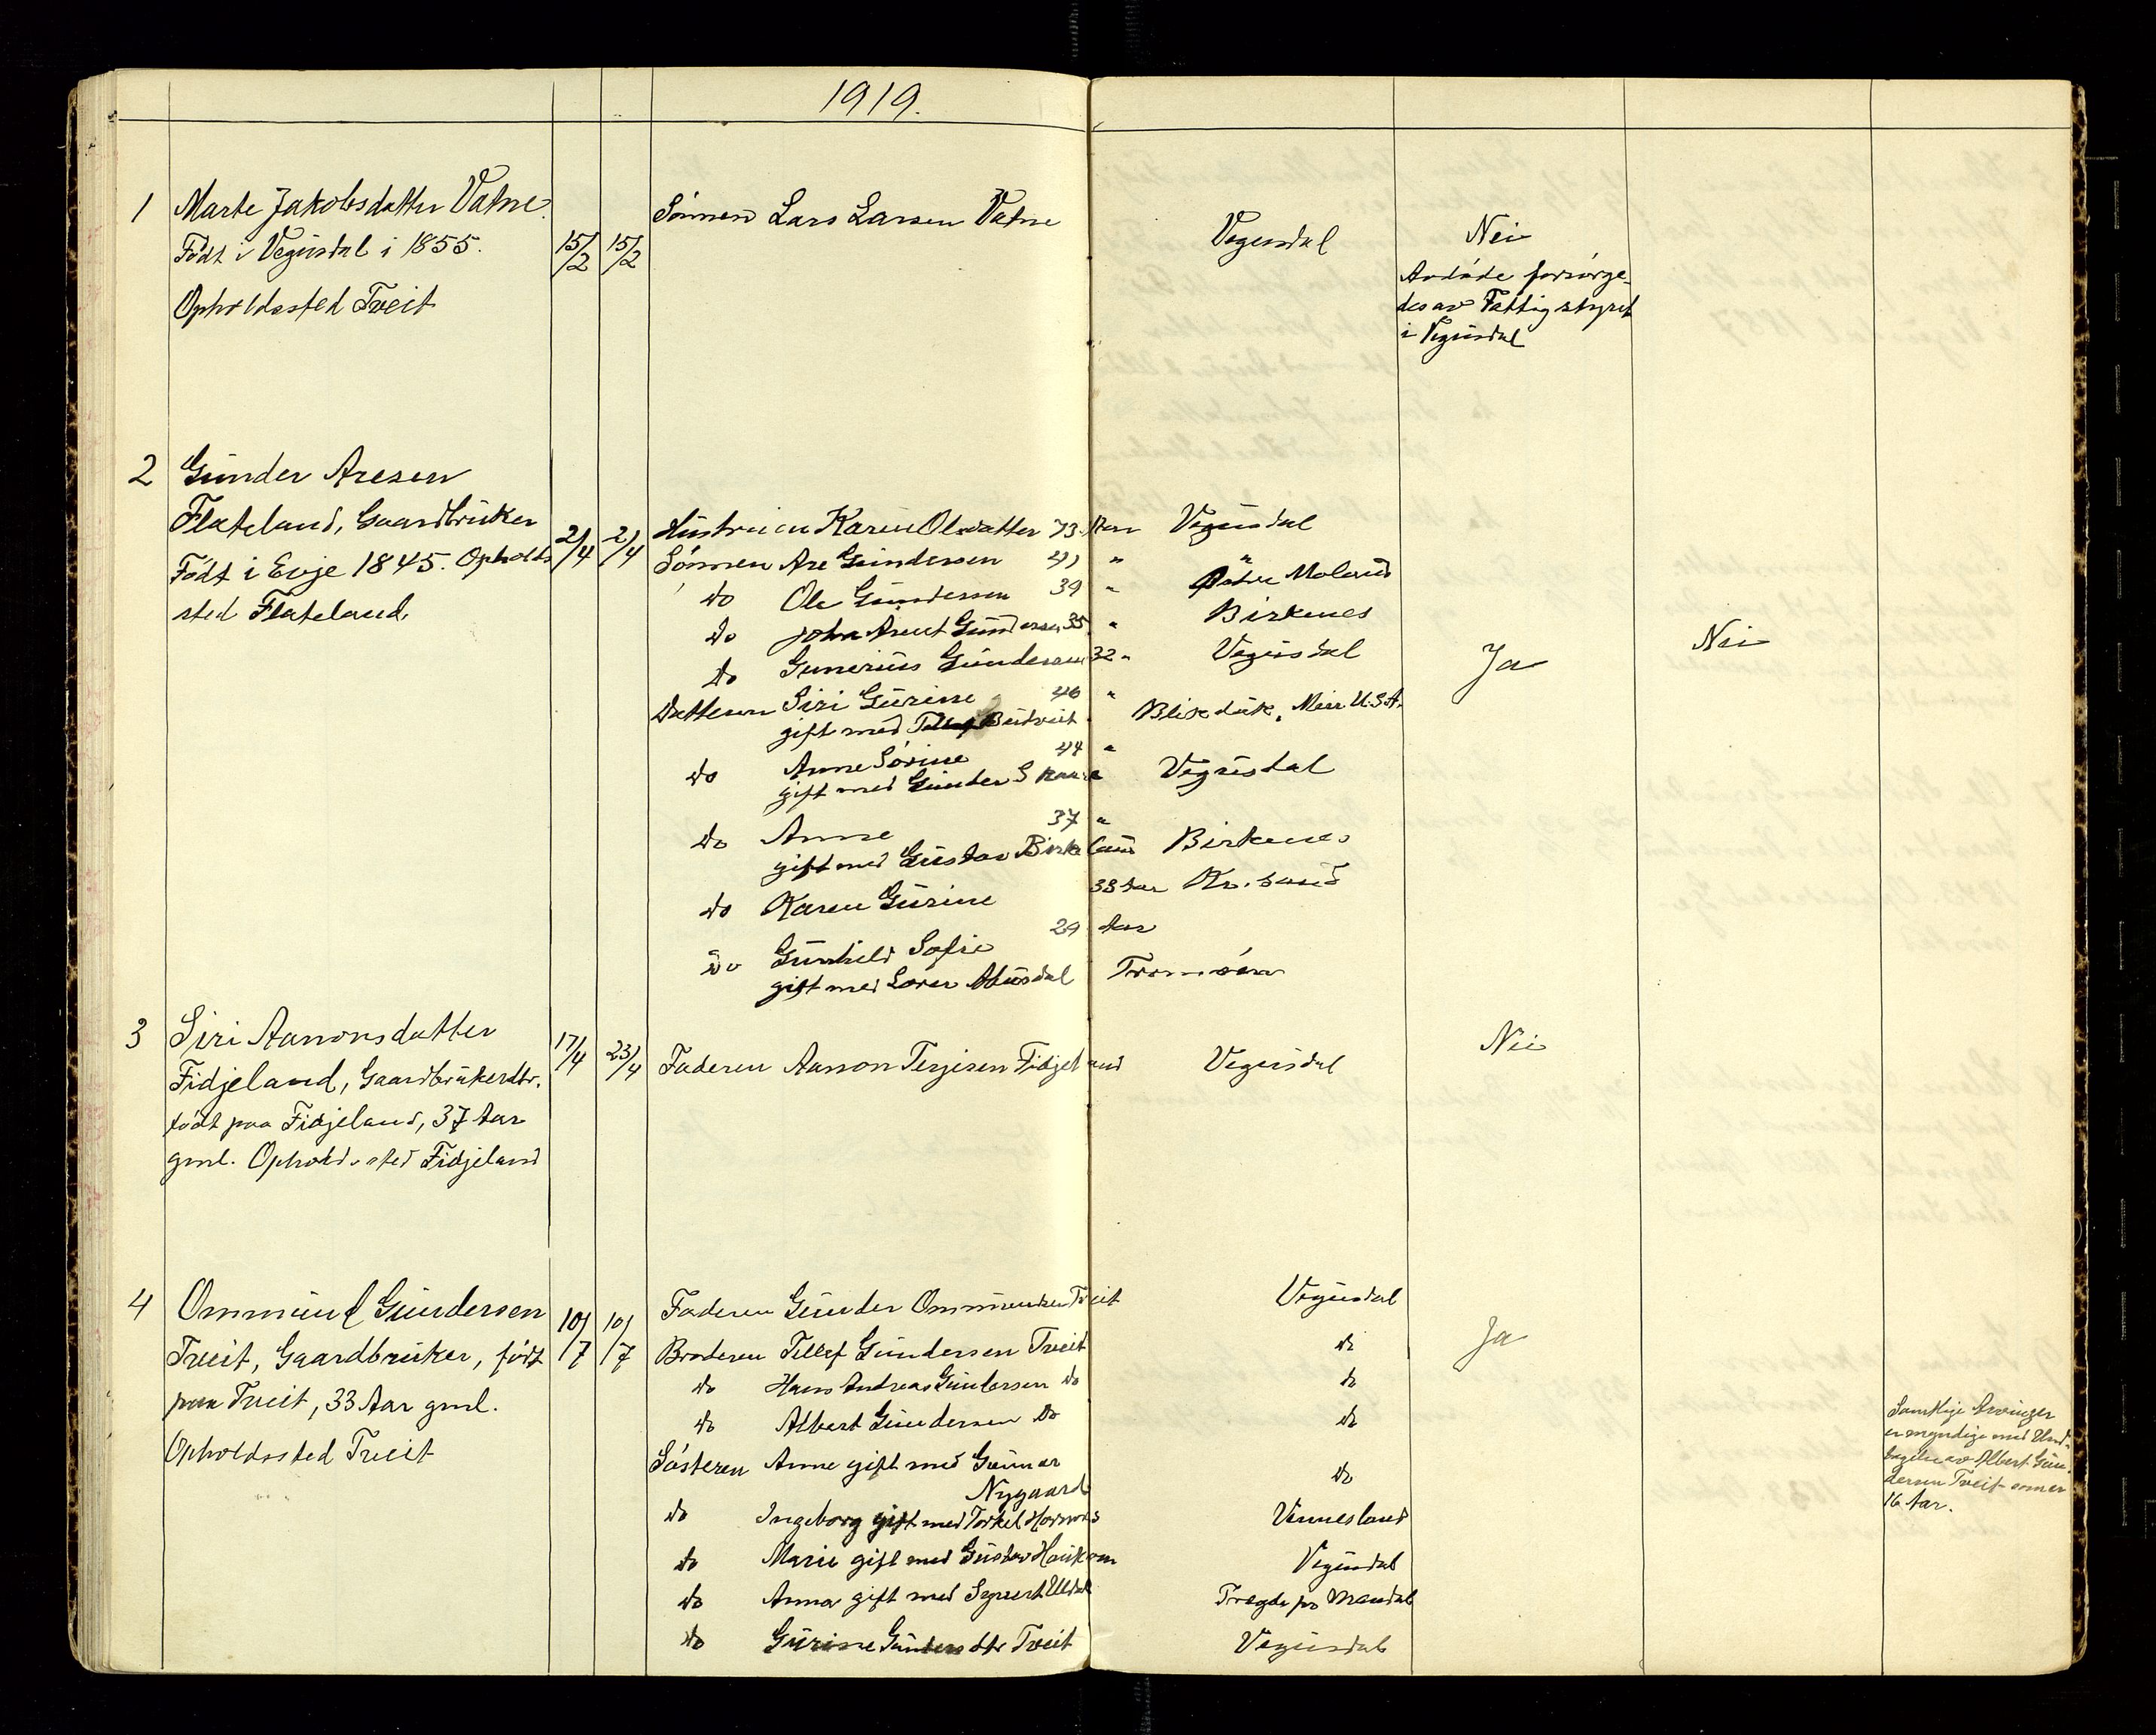 1919.
1 Marte Jakobsdatter Vatne.
Født i Vegusdal i 1855.
Opholdssted Tveit
15/2 15/2
Sønnen Lars Larsen Vatne
Vegusdal
Nei
Avdøde forsørge-
des av Fattigstyret
i Vegusdal
2 Gunder Aresen
Flateland, Gaardbruker
Født i Evje 1845. Opholds
sted Flateland.
2/4 2/4
Hustruen Karen Olsdatter 73 Aar Vegusdal
Sønnen Are Gundersen 41 " "
do Ole Gundersen 39 " Østre Moland
do John Arent Gundersen 35 " Birkenes
do Gunerius Gundersen 32 " Vegusdal
Ja
Nei
Datteren Siri Gurine 46 "
gift med Tellef Beutveit Minn U.S.A.
do Anne Sørine 44 "
gift med Gunder Skaare Vegusdal
do Anne 37 "
gift med Gustav Birkeland Birkenes
do Karen Gurine 33 Aar Kr.sand
do Gunhild Sofie 29 Aar
gift med Lover Tromøen
3 Siri Aanonsdatter
Fidjeland, Gaardbrukerdtr.
født paa Fidjeland, 37 Aar
gml. Opholdssted Fidjeland
17/4 23/4
Faderen Aanon Terjesen Fidjeland
Vegusdal
Nei
4 Ommund Gundersen
Tveit, Gaardbruker, født
paa Tveit, 33 Aar gml.
Opholdssted Tveit
10/7 10/7
Faderen Gunder Ommundsen Tveit Vegusdal
Broderen Tellef Gundersen Tveit do
Ja
do Hans Andreas Gundersen do do
do Albert Gundersen do do
Søsteren Anne gift med Gunnar
Nygaard do
do Ingeborg gift med Torkel Hornnes Vennesland
do Marie gift med Gustav Haukom Vegusdal
do Anna gift med Sigvert Uldal Tregde pr Mandal
do Gurine Gundersdtr Tveit Vegusdal
Samtlige Arvinger
er myndige med Und-
tagelse av Albert Gun-
dersen Tveit som er
16 Aar.